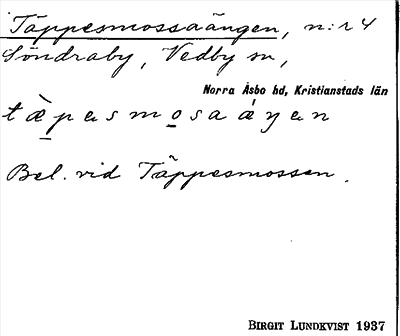 Täppesmossaängen, n:r 4
Söndraby, Vedby sn,
Norra Åsbo hd, Kristianstads län
tæ̀pesmo̲saáŋen
Bel. vid Täppesmossen.
BIRGIT LUNDKVIST 1937